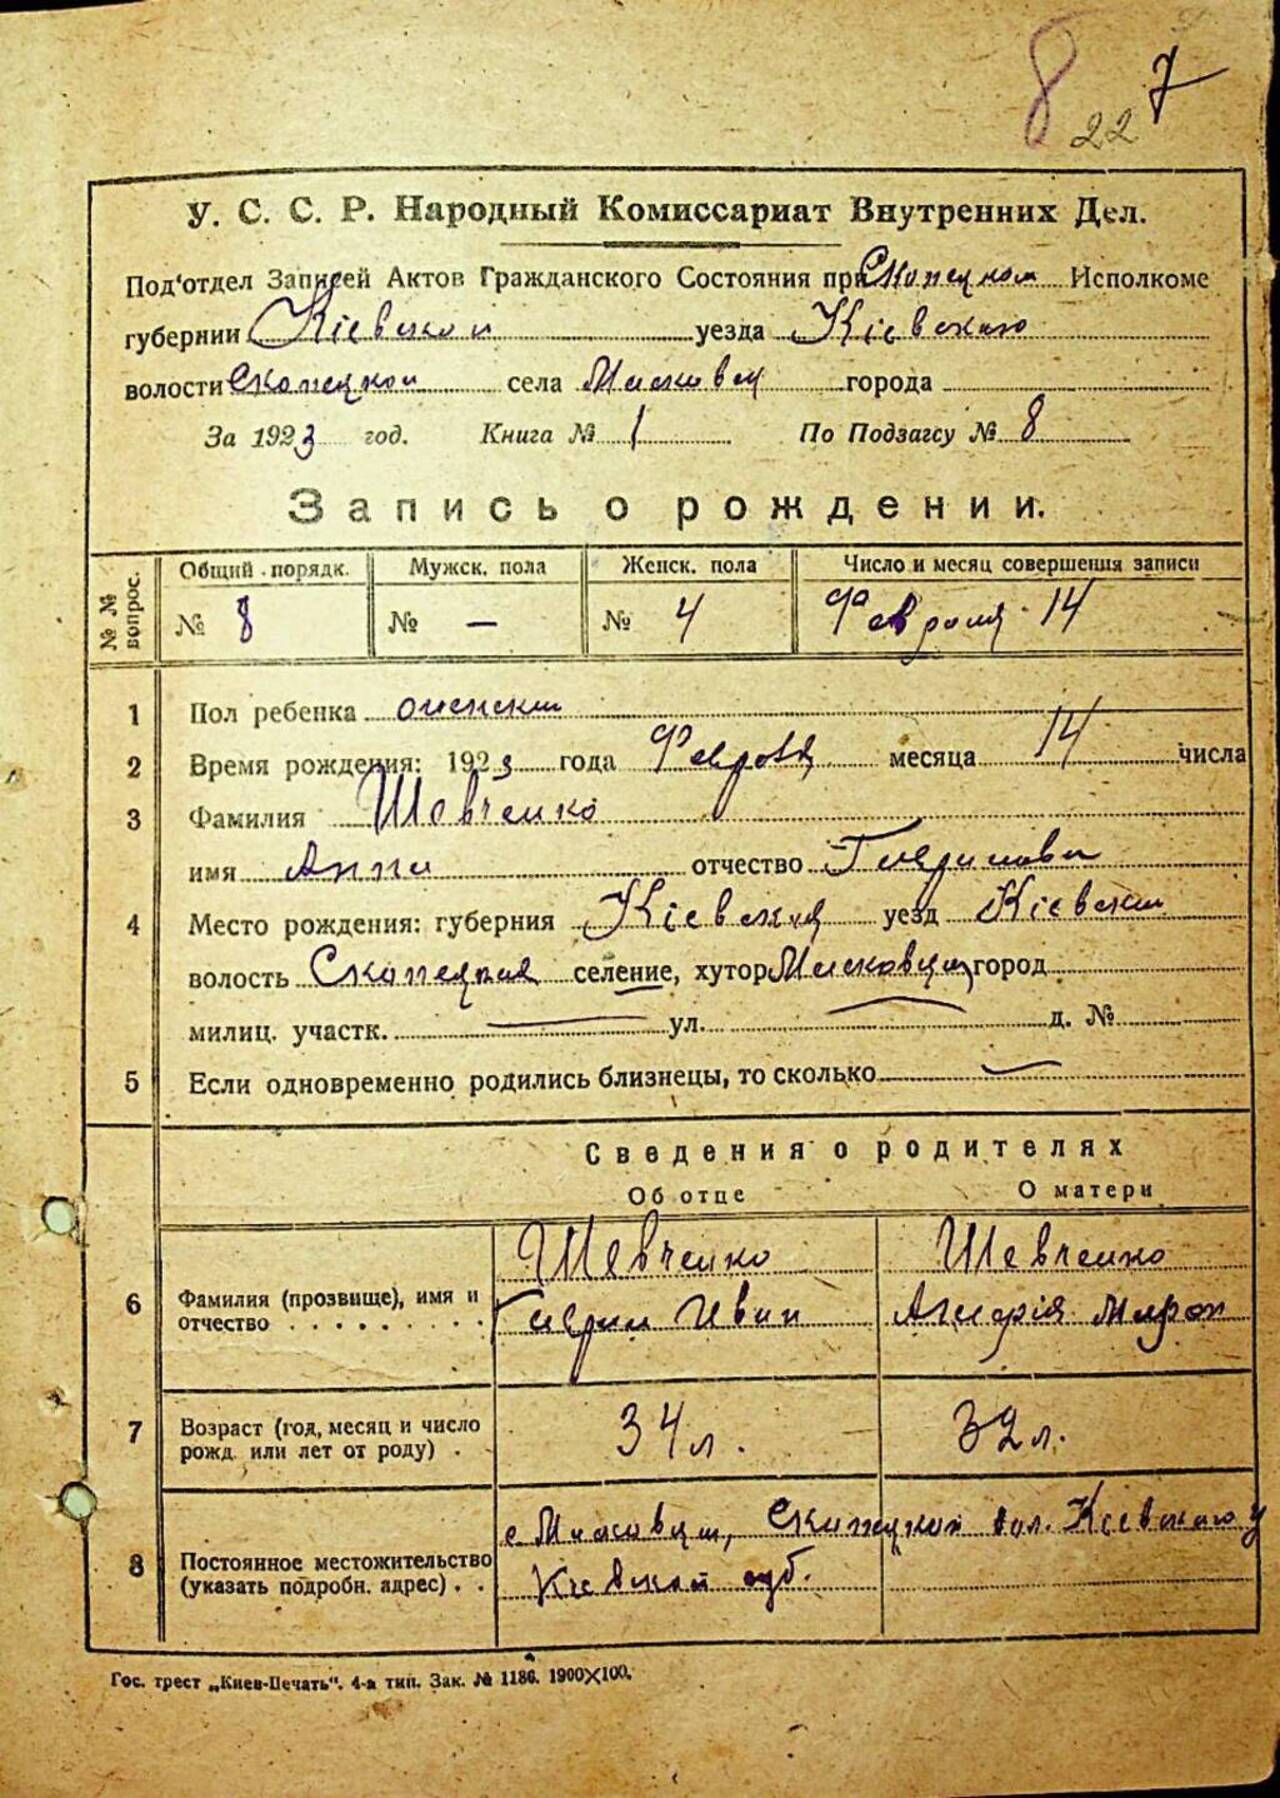 8 22 7
У. С. С. Р. Народный Комиссариат Внутренних Дел.
Под'отдел Записей Актов Гражданского Состояния при Скопецком Исполкоме
губернии Кіевской уезда Кіевского
волости Скопецкой села города
За 1923 год. Книга № 1 По Подзагсу № 8
Запись о рождении.
№ № вопрос.
Общий порядк. Мужск. пола Женск. пола Число и месяц совершения записи
№ 8 № — № 4 Февраля 14
1 Пол ребенка женский
2 Время рождения: 1923 года месяца 14 числа
3 Фамилия Шевченко
имя Анна отчество Гаврилова
4 Место рождения: губерния Кіевская уезд Кіевский
волость Скопецкая селение, хутор город
милиц. участк. — ул. — д. №
5 Если одновременно родились близнецы, то сколько —
Сведения о родителях
Об отце О матери
6 Фамилия (прозвище), имя и отчество . . . . . . . . .
Шевченко Шевченко
Гаврил Иван Мирон
7 Возраст (год, месяц и число рожд. или лет от роду) .
34 л. 32 л.
8 Постоянное местожительство (указать подробн. адрес) . .
с. вол. Кіевского у
Киевской губ.
Гос. трест „Киев-Печать“. 4-а тип. Зак. № 1186. 1900×100.